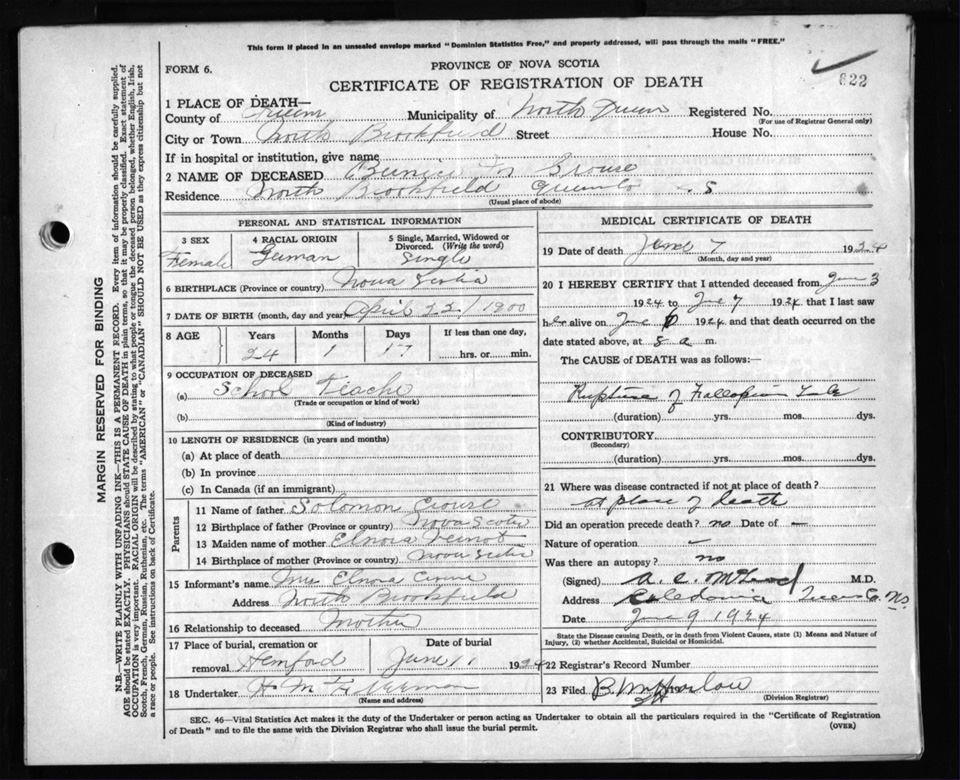 This form if placed in an unsealed envelope marked "Dominion Statistics Free," and properly addressed, will pass through the mails "FREE."
FORM 6.
PROVINCE OF NOVA SCOTIA
622
CERTIFICATE OF REGISTRATION OF DEATH
1 PLACE OF DEATH—
County of Queens Municipality of North Queens Registered No.
(For use of Registrar General only)
City or Town North Brookfield Street House No.
If in hospital or institution, give name
2 NAME OF DECEASED Eunice M Crouse
Residence North Brookfield Queens Co N.S
(Usual place of abode)
PERSONAL AND STATISTICAL INFORMATION
3 SEX 4 RACIAL ORIGIN 5 Single, Married, Widowed or Divorced. (Write the word)
Female German Single
6 BIRTHPLACE (Province or country) Nova Scotia
7 DATE OF BIRTH (month, day and year) April 22/1900
8 AGE Years Months Days If less than one day,
24 1 17 hrs. or min.
9 OCCUPATION OF DECEASED
(a) School Teacher
(Trade or occupation or kind of work)
(b)
(Kind of industry)
10 LENGTH OF RESIDENCE (in years and months)
(a) At place of death
(b) In province
(c) In Canada (if an immigrant)
Parents
11 Name of father Solomon Crouse
12 Birthplace of father (Province or country) Nova Scotia
13 Maiden name of mother Elnora Veinot
14 Birthplace of mother (Province or country) Nova Scotia
15 Informant's name Mrs Elnora Crouse
Address North Brookfield
16 Relationship to deceased Mother
17 Place of burial, cremation or Date of burial
removal Hemford June 11 1924
18 Undertaker H M
(Name and address)
MEDICAL CERTIFICATE OF DEATH
19 Date of death June 7 1924
(Month, day and year)
20 I HEREBY CERTIFY that I attended deceased from June 3
1924 to June 7 1924, that I last saw
her alive on June 1924 and that death occurred on the
date stated above, at 8 a m.
The CAUSE of DEATH was as follows:—
Rupture of Fallopian Tube
(duration) yrs. mos. dys.
CONTRIBUTORY
(Secondary)
(duration) yrs. mos. dys.
21 Where was disease contracted if not at place of death?
at place of death
Did an operation precede death? no Date of —
Nature of operation —
Was there an autopsy? no
(Signed) A. C. McLeod M.D.
Address Caledonia Queens Co. N.S.
Date June 9 1924
State the Disease causing Death, or in death from Violent Causes, state (1) Means and Nature of
Injury, (2) whether Accidental, Suicidal or Homicidal.
22 Registrar's Record Number
23 Filed B. M. Harlow 19
(Division Registrar)
SEC. 46—Vital Statistics Act makes it the duty of the Undertaker or person acting as Undertaker to obtain all the particulars required in the "Certificate of Registration
of Death" and to file the same with the Division Registrar who shall issue the burial permit.
(OVER)
MARGIN RESERVED FOR BINDING
N.B.—WRITE PLAINLY WITH UNFADING INK—THIS IS A PERMANENT RECORD. Every item of information should be carefully supplied.
AGE should be stated EXACTLY. PHYSICIANS should STATE CAUSE OF DEATH in plain terms, so that it may be properly classified. Exact statement of
OCCUPATION is very important. RACIAL ORIGIN will be described by stating to what people or tongue the deceased person belonged, whether English, Irish,
Scotch, French, German, Russian, Ruthenian, etc. The terms "AMERICAN" or "CANADIAN" SHOULD NOT BE USED as they express citizenship but not
a race or people. See instructions on back of Certificate.